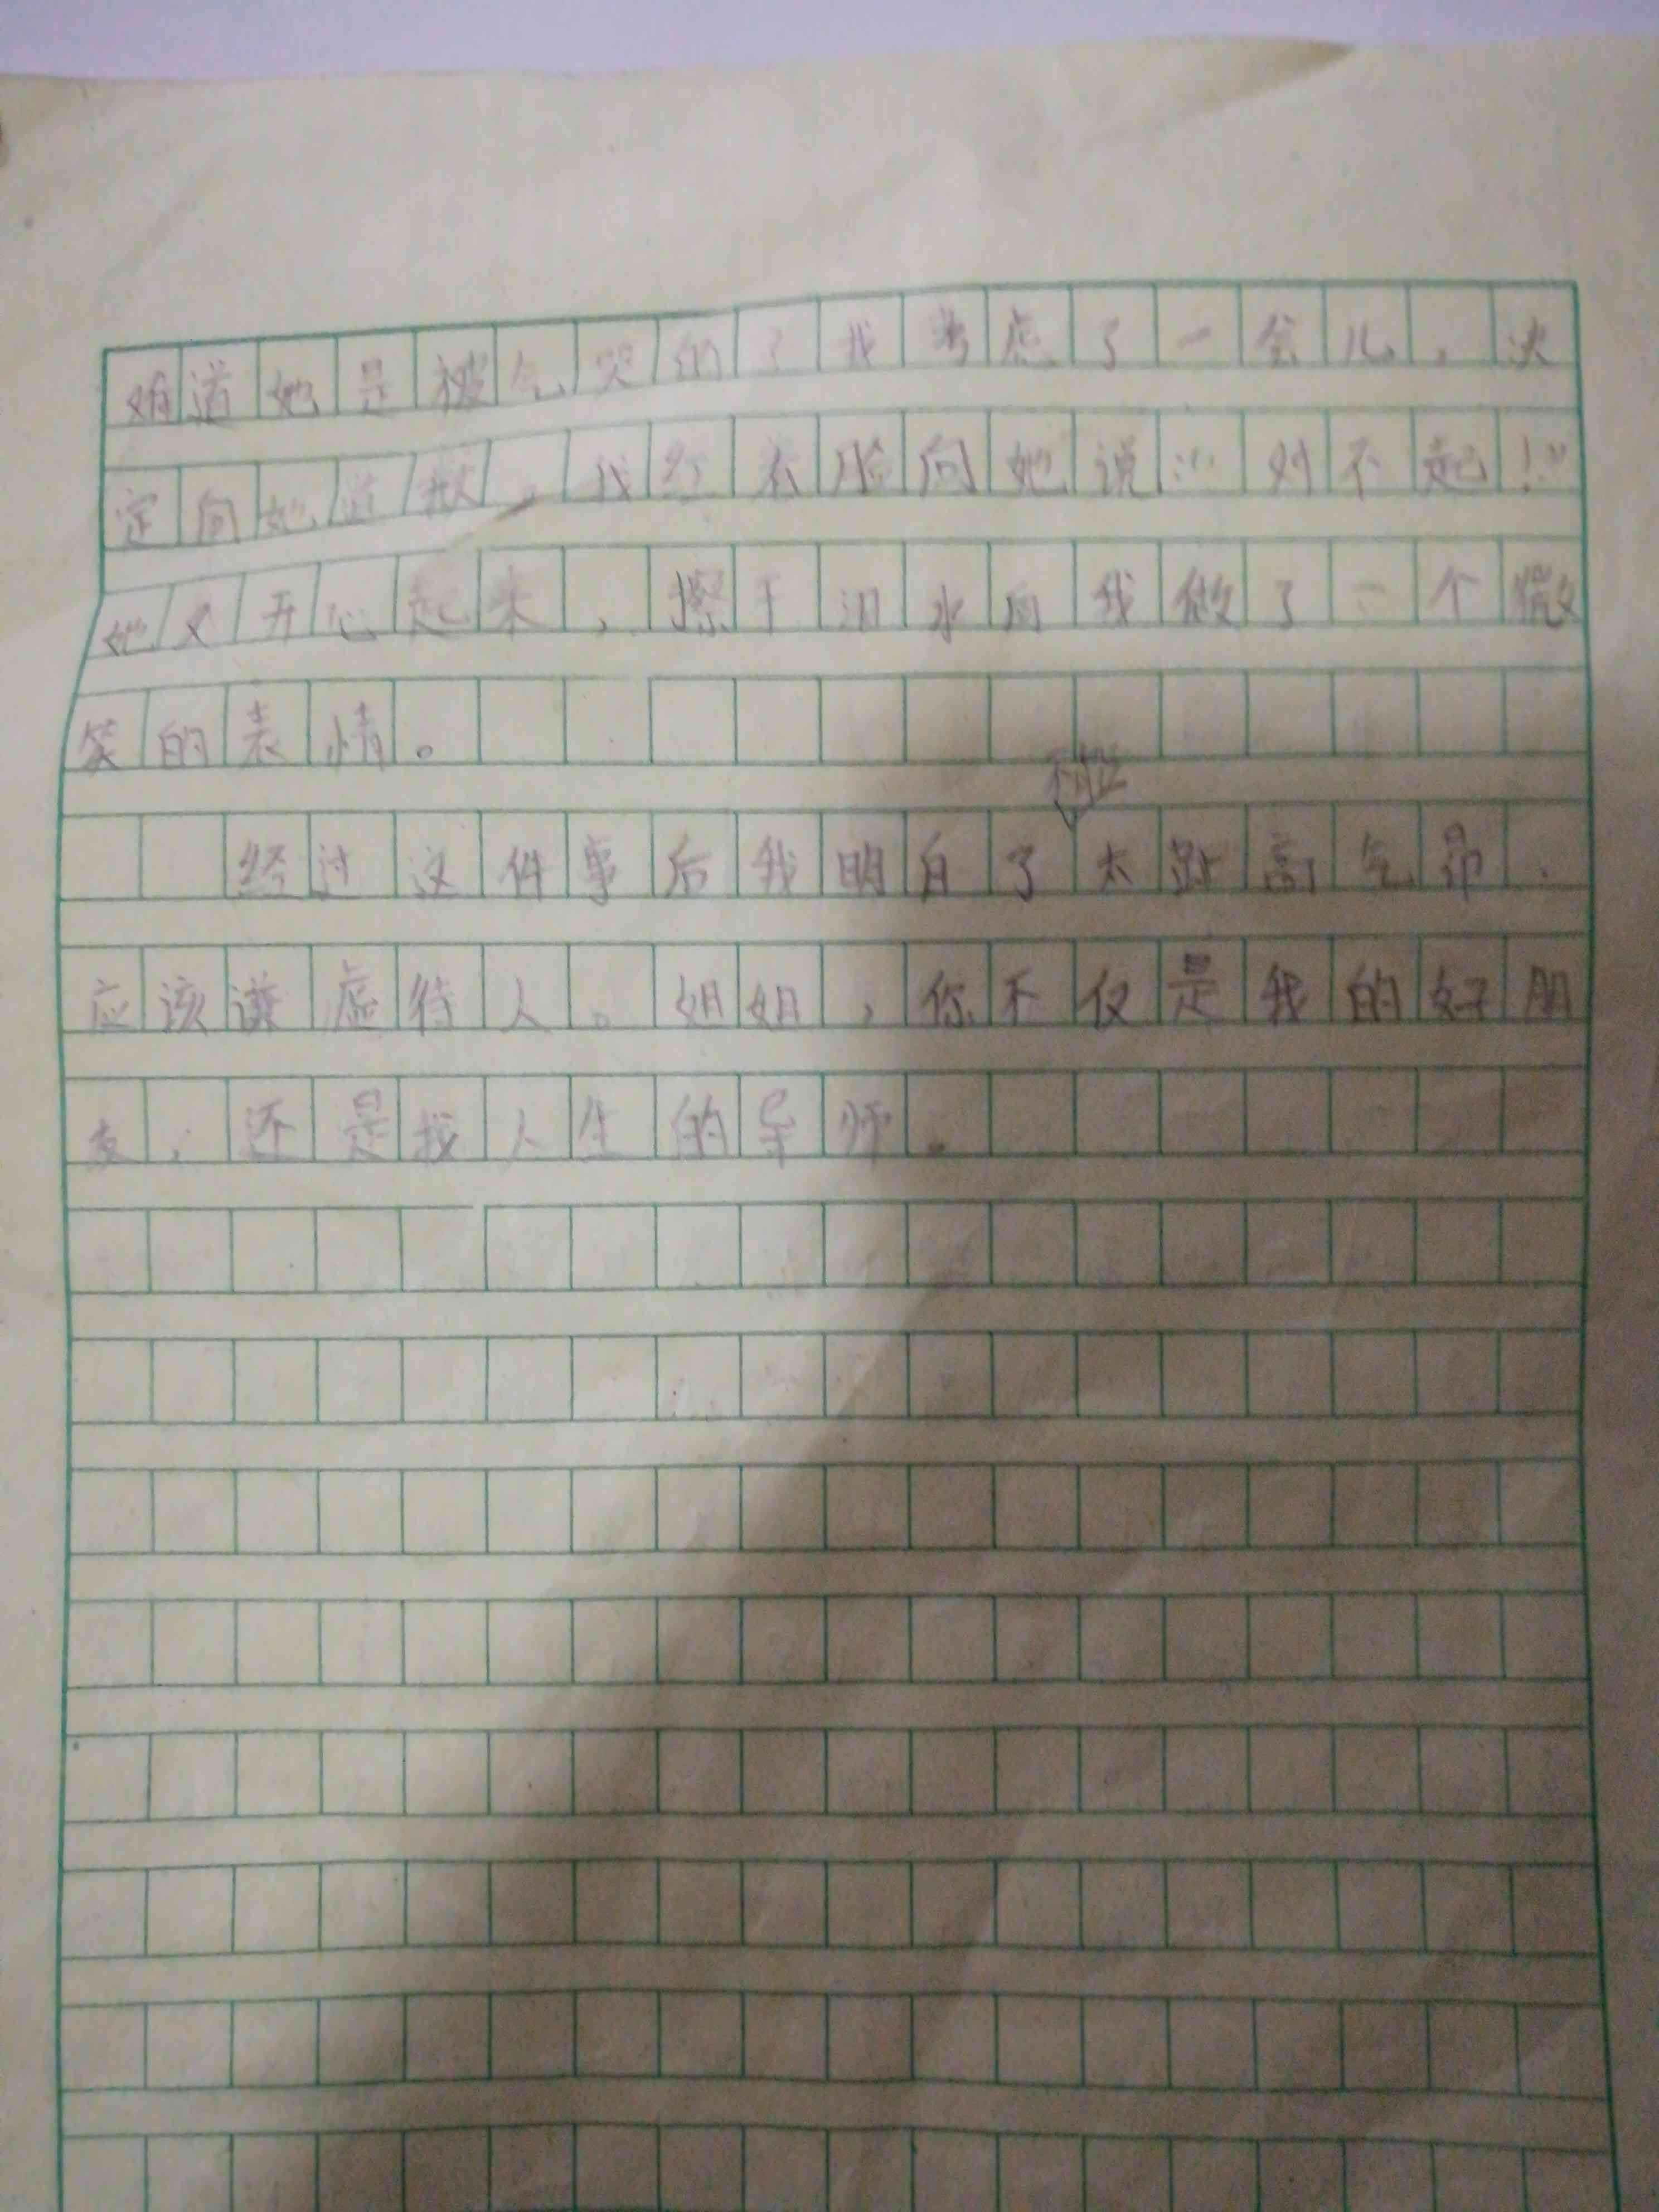 难道她是被气哭的了我考虑了一会儿，决
定向她道歉。我红着脸向她说：“对不起！”
她又开心起来，擦干泪水向我做了一个微
笑的表情。
不能
经过这件事后我明白了太趾高气昂，
应该谦虚待人。姐姐，你不仅是我的好朋
友，还是我人生的导师。